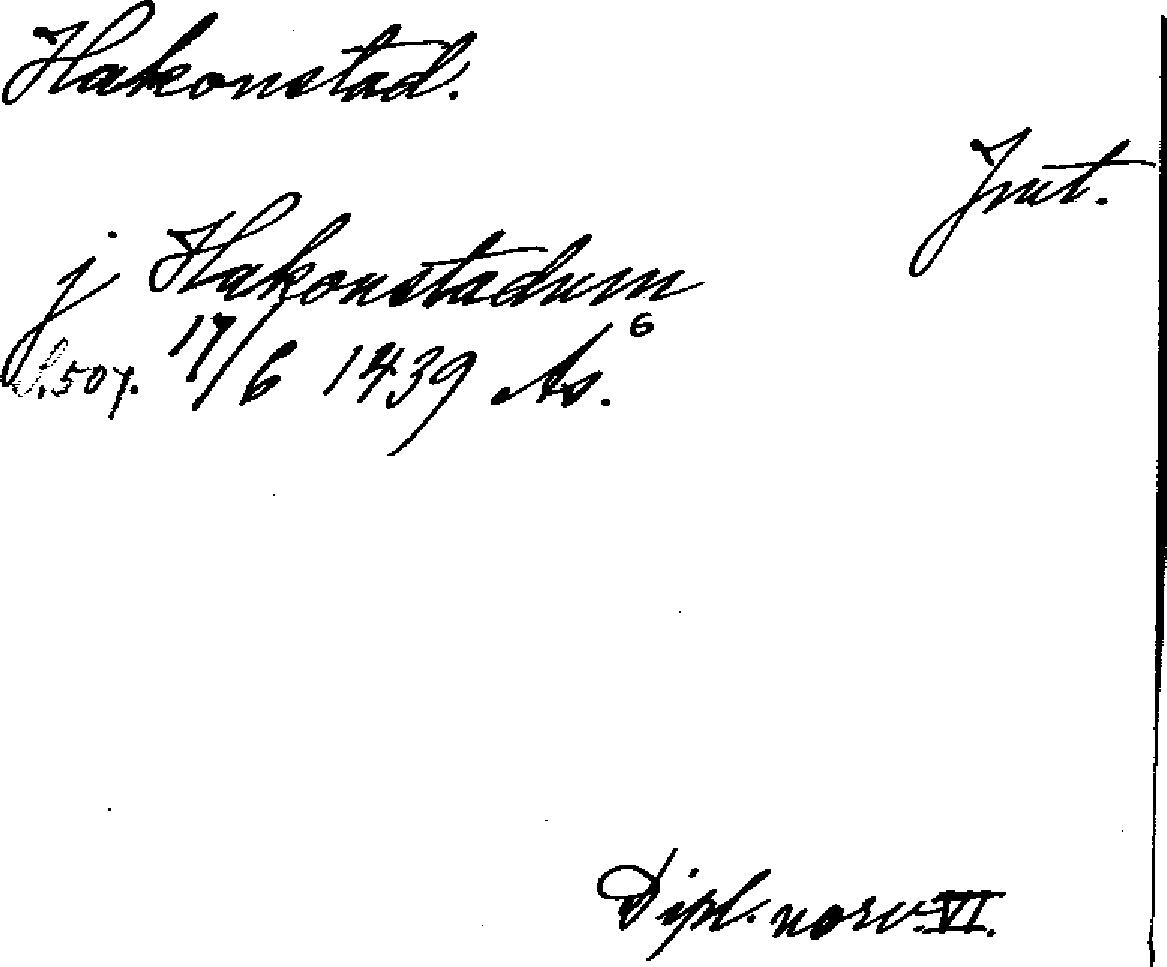 Hakonstad.
Jmt.
j Hakonstadum
S. 507. 17/6 1439 As. 6
Dipl. norv. VI.